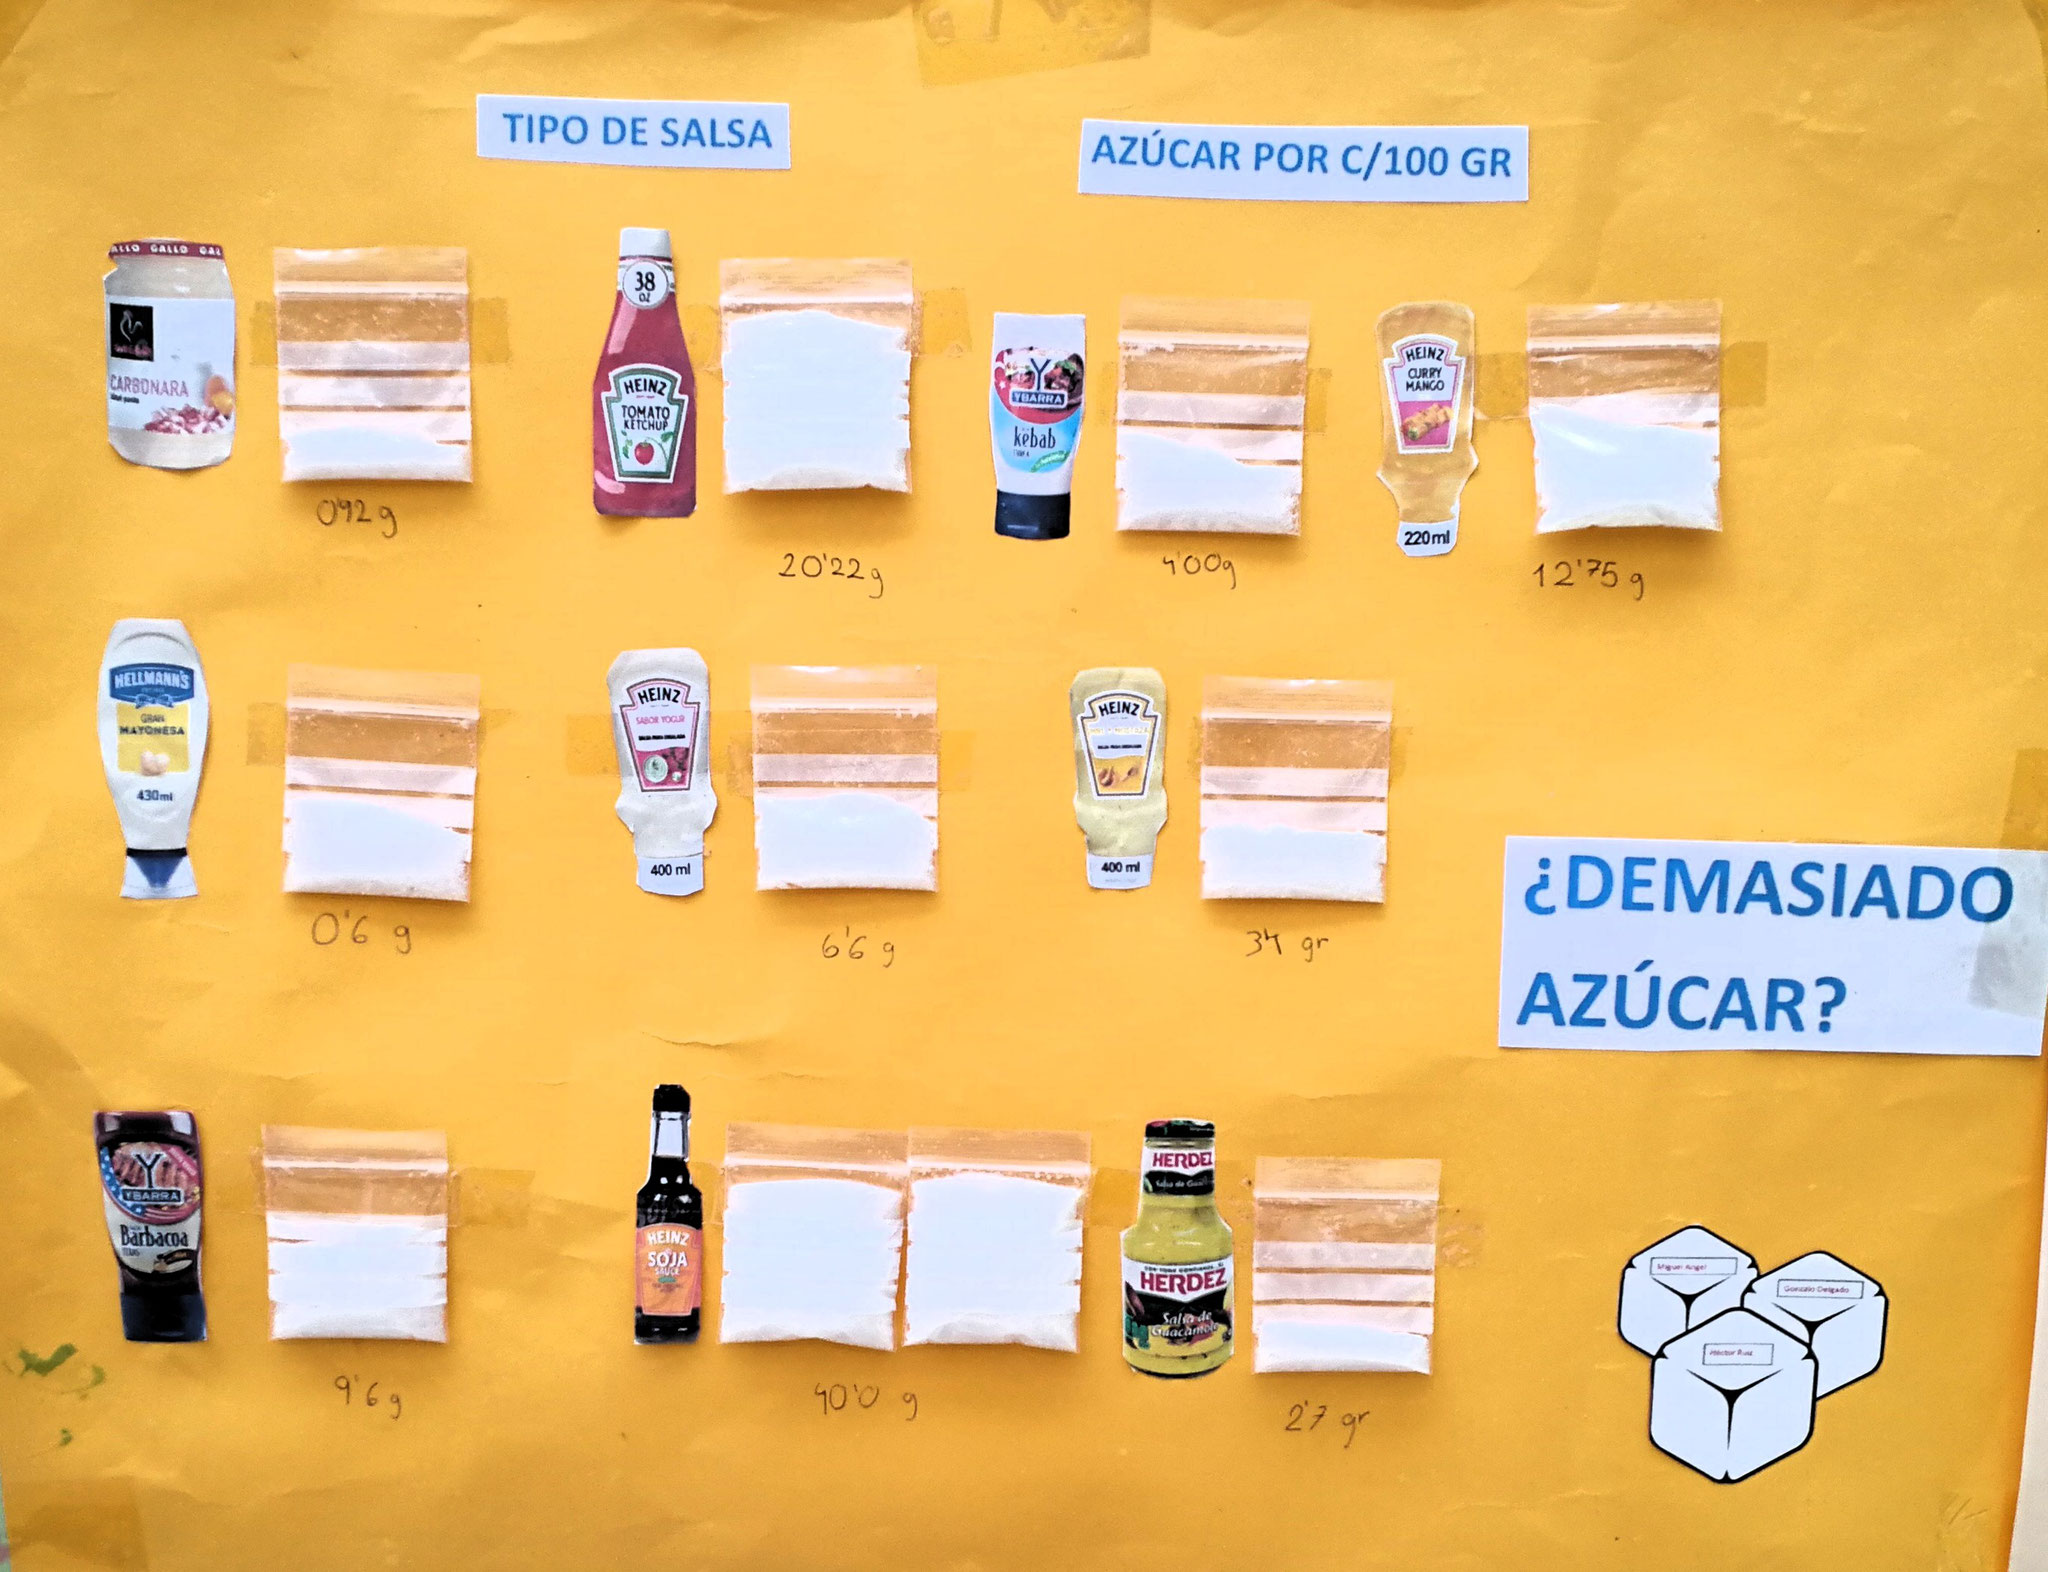 TIPO DE SALSA
AZÚCAR POR C/100 GR
GALLO GAL
CARBONARA
0'92 g
38
OZ
HEINZ
TOMATO
KETCHUP
20'22 g
Y
YBARRA
kebab
4'00g
HEINZ
CURRY
MANGO
220 ml
12'75 g
HELLMANN'S
GRAN
MAYONESA
430ml
0'6 g
HEINZ
SABOR YOGUR
SALSA PARA ENSALADA
400 ml
6'6 g
HEINZ
SALSA PARA ENSALADA
400 ml
3'4 gr
¿DEMASIADO
AZÚCAR?
Y
YBARRA
Barbacoa
TEXAS
9'6 g
HEINZ
SOJA
SAUCE
40'0 g
HERDEZ
Salsa de
HERDEZ
Salsa de
Guacamole
2'7 gr
Miguel Angel
Gonzalo Delgado
Héctor Ruiz